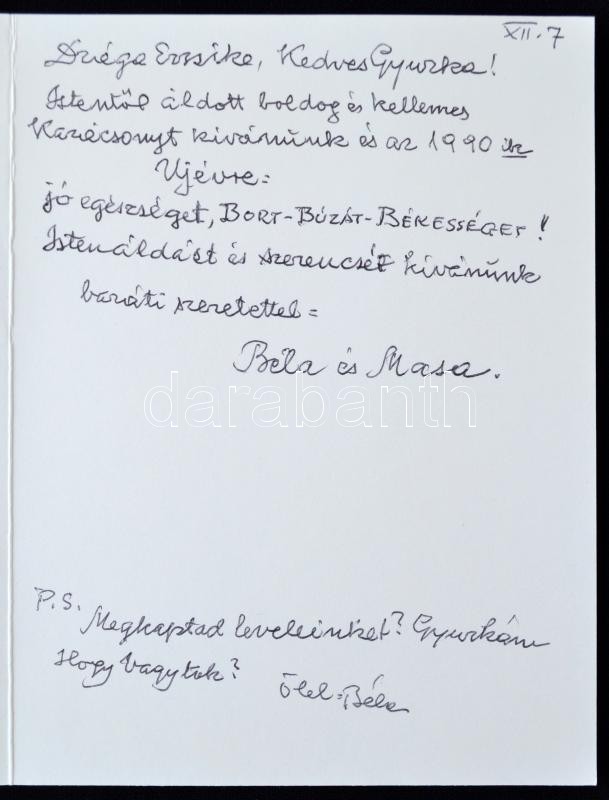 XII. 7
Drága Erzsike, Kedves Gyurka!
Istentől áldott boldog és kellemes
Karácsonyt kívánunk és az 1990
Ujévre =
jó egészséget, BORT-BÚZÁT-BÉKESSÉGET!
Istenáldást és szerencsét kívánunk
baráti szeretettel =
Béla és Masa.
darabanth
P.S.
Megkaptad leveleinket? Gyurkám
Hogy Vagytok?
ölel = Béla